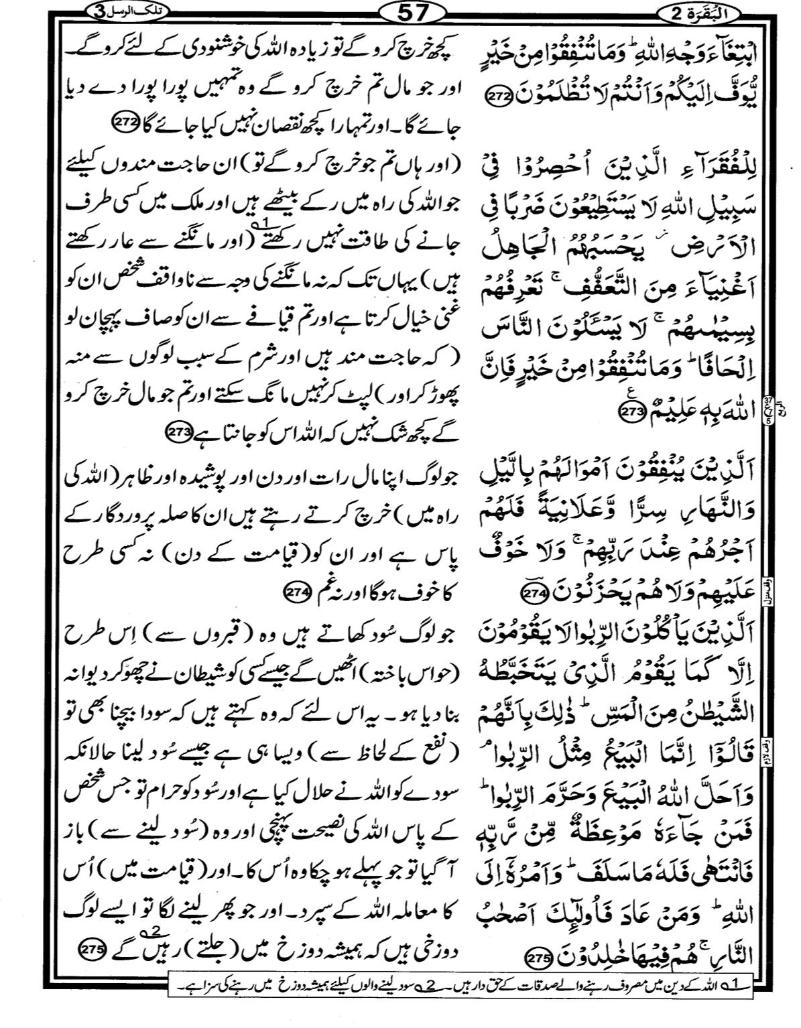 اَلْبَقَرَة 2
57
تلک الرسل 3
ابْتِغَآءَ وَجْهِ اللّٰهِ ؕ وَمَا تُنْفِقُوْا مِنْ خَيْرٍ
يُّوَفَّ اِلَيْكُمْ وَاَنْتُمْ لَا تُظْلَمُوْنَ 272
لِلْفُقَرَآءِ الَّذِيْنَ اُحْصِرُوْا فِيْ
سَبِيْلِ اللّٰهِ لَا يَسْتَطِيْعُوْنَ ضَرْبًا فِي
الْاَرْضِ ز يَحْسَبُهُمُ الْجَاهِلُ
اَغْنِيَآءَ مِنَ التَّعَفُّفِ ۚ تَعْرِفُهُمْ
بِسِيْمٰىهُمْ ۚ لَا يَسْـَٔلُوْنَ النَّاسَ
اِلْحَافًا ؕ وَمَا تُنْفِقُوْا مِنْ خَيْرٍ فَاِنَّ
اللّٰهَ بِهٖ عَلِيْمٌ ع 273
اَلَّذِيْنَ يُنْفِقُوْنَ اَمْوَالَهُمْ بِالَّيْلِ
وَالنَّهَارِ سِرًّا وَّعَلَانِيَةً فَلَهُمْ
اَجْرُهُمْ عِنْدَ رَبِّهِمْ ۚ وَلَا خَوْفٌ
عَلَيْهِمْ وَلَا هُمْ يَحْزَنُوْنَ 274
اَلَّذِيْنَ يَاْكُلُوْنَ الرِّبٰوا لَا يَقُوْمُوْنَ
اِلَّا كَمَا يَقُوْمُ الَّذِيْ يَتَخَبَّطُهُ
الشَّيْطٰنُ مِنَ الْمَسِّ ؕ ذٰلِكَ بِاَنَّهُمْ
قَالُوْٓا اِنَّمَا الْبَيْعُ مِثْلُ الرِّبٰوا ۘ
وَاَحَلَّ اللّٰهُ الْبَيْعَ وَحَرَّمَ الرِّبٰوا ؕ
فَمَنْ جَآءَهٗ مَوْعِظَةٌ مِّنْ رَّبِّهٖ
فَانْتَهٰى فَلَهٗ مَا سَلَفَ ؕ وَاَمْرُهٗٓ اِلَى
اللّٰهِ ؕ وَمَنْ عَادَ فَاُولٰٓئِكَ اَصْحٰبُ
النَّارِ ۚ هُمْ فِيْهَا خٰلِدُوْنَ 275
کچھ خرچ کرو گے تو زیادہ اللہ کی خوشنودی کے لئے کرو گے۔
اور جو مال تم خرچ کرو گے وہ تمہیں پورا پورا دے دیا
جائے گا۔ اور تمہارا کچھ نقصان نہیں کیا جائے گا 272
(اور ہاں تم جو خرچ کرو گے تو) ان حاجت مندوں کیلئے
جو اللہ کی راہ میں رکے بیٹھے ہیں اور ملک میں کسی طرف
جانے کی طاقت نہیں رکھتے 1 (اور مانگنے سے عار رکھتے
ہیں) یہاں تک کہ نہ مانگنے کی وجہ سے ناواقف شخص ان کو
غنی خیال کرتا ہے اور تم قیافے سے ان کو صاف پہچان لو
(کہ حاجت مند ہیں اور شرم کے سبب لوگوں سے منہ
پھوڑ کر اور) لپٹ کر نہیں مانگ سکتے اور تم جو مال خرچ کرو
گے کچھ شک نہیں کہ اللہ اس کو جانتا ہے 273
جو لوگ اپنا مال رات اور دن اور پوشیدہ اور ظاہر (اللہ کی
راہ میں) خرچ کرتے رہتے ہیں ان کا صلہ پروردگار کے
پاس ہے اور ان کو (قیامت کے دن) نہ کسی طرح
کا خوف ہوگا اور نہ غم 274
جو لوگ سُود کھاتے ہیں وہ (قبروں سے) اِس طرح
(حواس باختہ) اٹھیں گے جیسے کسی کو شیطان نے چھو کر دیوانہ
بنا دیا ہو۔ یہ اس لئے کہ وہ کہتے ہیں کہ سودا بیچنا بھی تو
(نفع کے لحاظ سے) ویسا ہی ہے جیسے سُود لینا حالانکہ
سودے کو اللہ نے حلال کیا ہے اور سُود کو حرام تو جس شخص
کے پاس اللہ کی نصیحت پہنچی اور وہ (سُود لینے سے) باز
آ گیا تو جو پہلے ہو چکا وہ اُس کا۔ اور (قیامت میں) اُس
کا معاملہ اللہ کے سپرد۔ اور جو پھر لینے لگا تو ایسے لوگ
دوزخی ہیں کہ ہمیشہ دوزخ میں (جلتے) رہیں گے 2 275
الربع
وقف منزل
وقف لازم
1 اللہ کے دین میں مصروف رہنے والے صدقات کے حق دار ہیں۔ 2 سود لینے والوں کیلئے ہمیشہ دوزخ میں رہنے کی سزا ہے۔